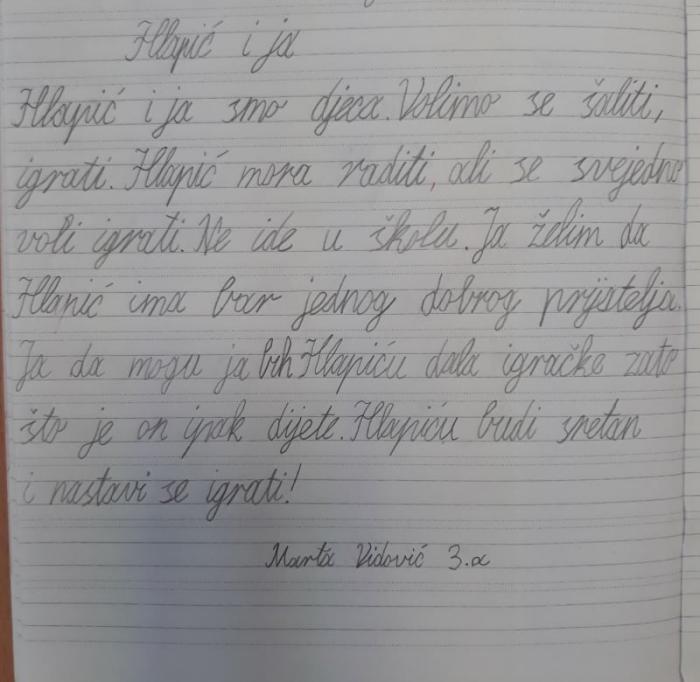 Hlapić i ja
Hlapić i ja smo djeca. Volimo se šaliti,
igrati. Hlapić mora raditi, ali se svejedno
voli igrati. Ne ide u školu. Ja želim da
Hlapić ima bar jednog dobrog prijatelja.
Ja da mogu ja bih Hlapiću dala igračke zato
što je on ipak dijete. Hlapiću budi sretan
i nastavi se igrati!
Marta Vidović 3.a